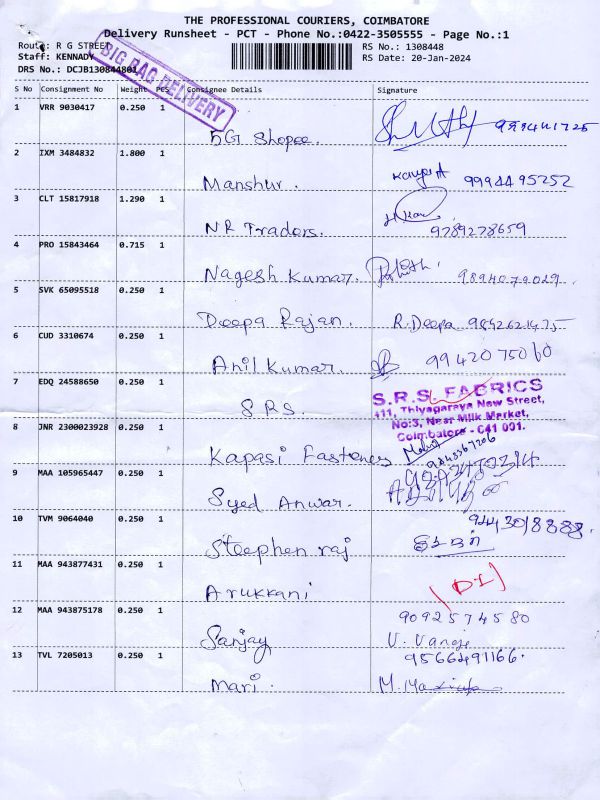 THE PROFESSIONAL COURIERS, COIMBATORE
Delivery Runsheet - PCT - Phone No.:0422-3505555 - Page No.:1
Route: R G STREET RS No.: 1308448
Staff: KENNADY RS Date: 20-Jan-2024
DRS No.: DCJB130844801
BIG BAG DELIVERY
S No Consignment No Weight PCS Consignee Details Signature
1 VRR 9030417 0.250 1
5G Shopee.
2 IXM 3484832 1.800 1
Manshur. 9994495252
3 CLT 15817918 1.290 1
NR Traders. 9789278659
4 PRO 15843464 0.715 1
Nagesh Kumar. 9894079029
5 SVK 65095518 0.250 1
Deepa Rajan. R.Deepa 9842621475
6 CUD 3310674 0.250 1
Anil Kumar. 9942075060
7 EDQ 24588650 0.250 1
S.R.S. FABRICS
11, Thiyagaraya New Street,
SRS. No:3, Near Milk Market,
Coimbatore - 641 001.
8 JNR 2300023928 0.250 1
Kapasi Fasteners
9 MAA 105965447 0.250 1
Syed Anwar.
10 TVM 9064040 0.250 1
9443018888.
Steephen raj
11 MAA 943877431 0.250 1
Arukkani
12 MAA 943875178 0.250 1 9092574580
Sanjay
13 TVL 7205013 0.250 1 9566491166.
Mari.